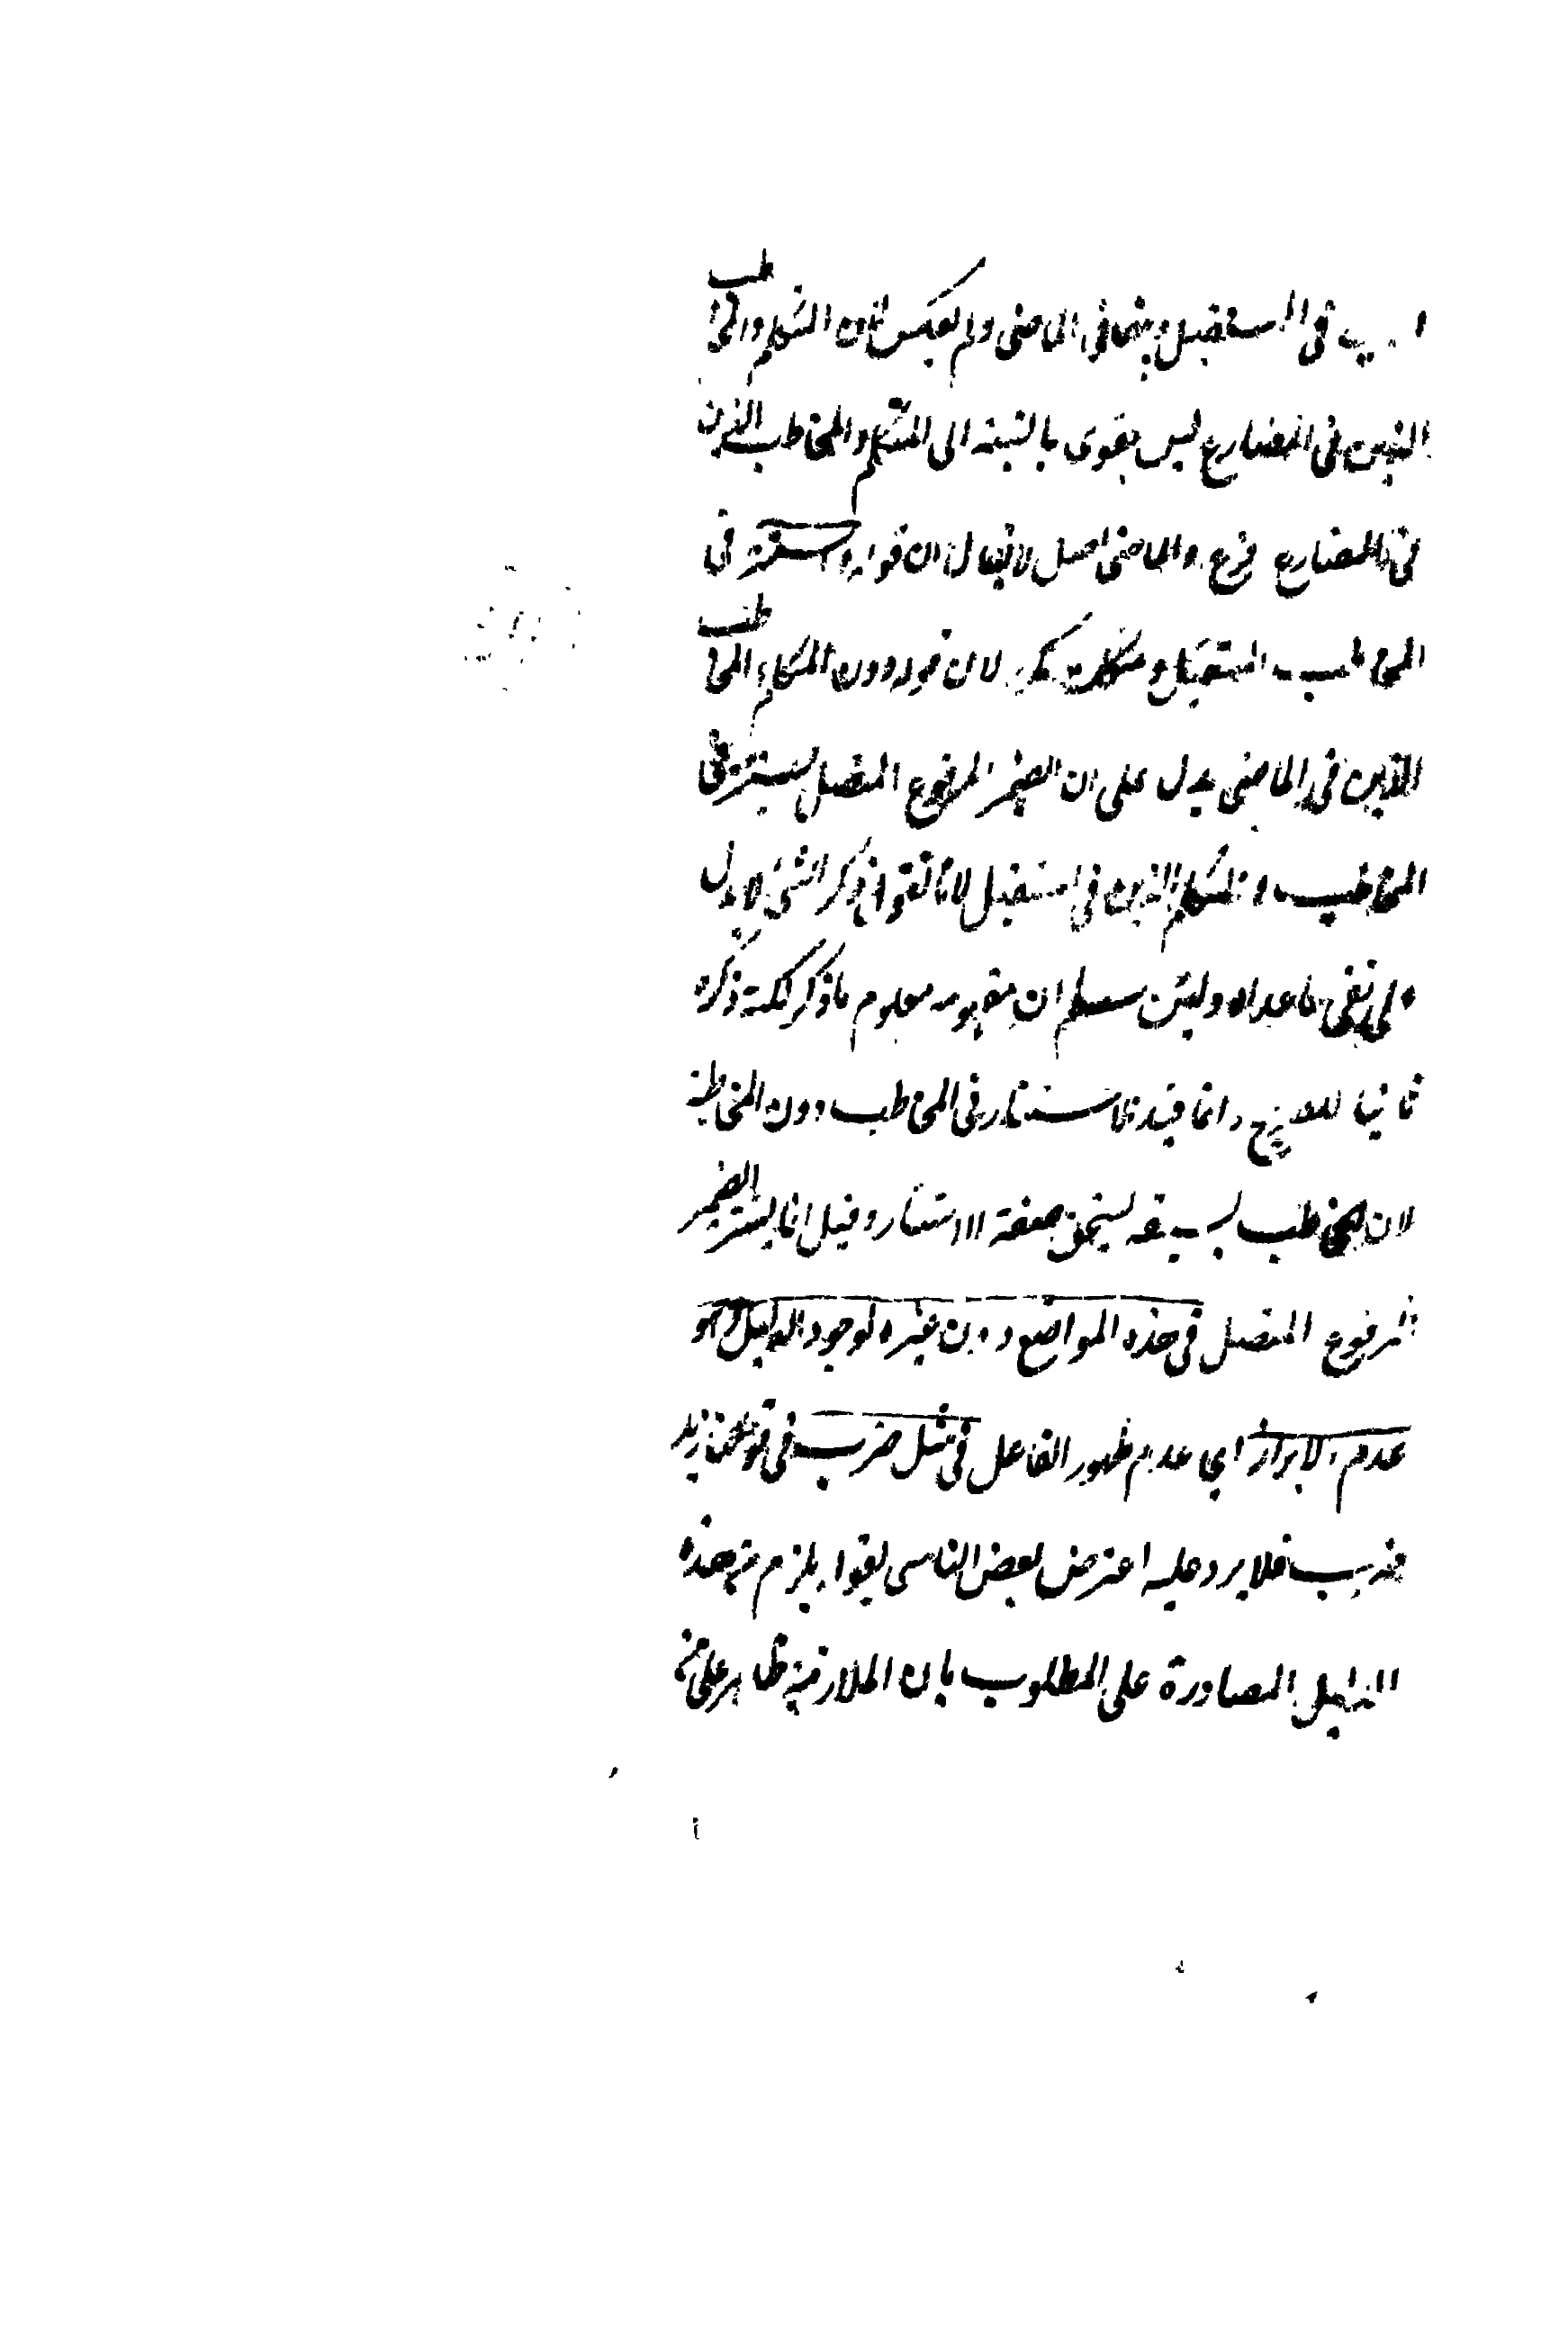 في المستقبل فيهما في الماضي ولم يعكس لان المتكلم والمخاطب
الذين في المضارع ليس بقوى بالنسبة الى المتكلم والمخاطب الذين
في المضارع فرع والماضي اصل لا يقال ان قوله واستتر في
المخاطب المستقبل لان قوله دون المتكلم المخاطب
الذين في الماضي يدل على ان الضمير المرفوع المتصل يستتر في
المخاطب والمتكلم الذين في المستقبل لانا نقول ذكر الشيء لا يدل
على نفي ما عداه ولئن سلم ان مفهومه معلوم ما ذكر لكنه ذكره
ثانيا للتصريح وانما قيد بالاستتار في المخاطب دون المخاطبة
لان المخاطب لسبقه يستحق صفة الاستتار وقيل انما يستتر الضمير
المرفوع المتصل في هذه المواضع دون غيره لوجود الدليل وهو
عدم الابراز اي عدم ظهور الفاعل في مثل ضرب في قولنا زيد
ضرب فلا يرد عليه اعترض بعض الناس بقوله يلزم من هذه
الدليل المصادرة على المطلوب بان الملازمة ظاهر على